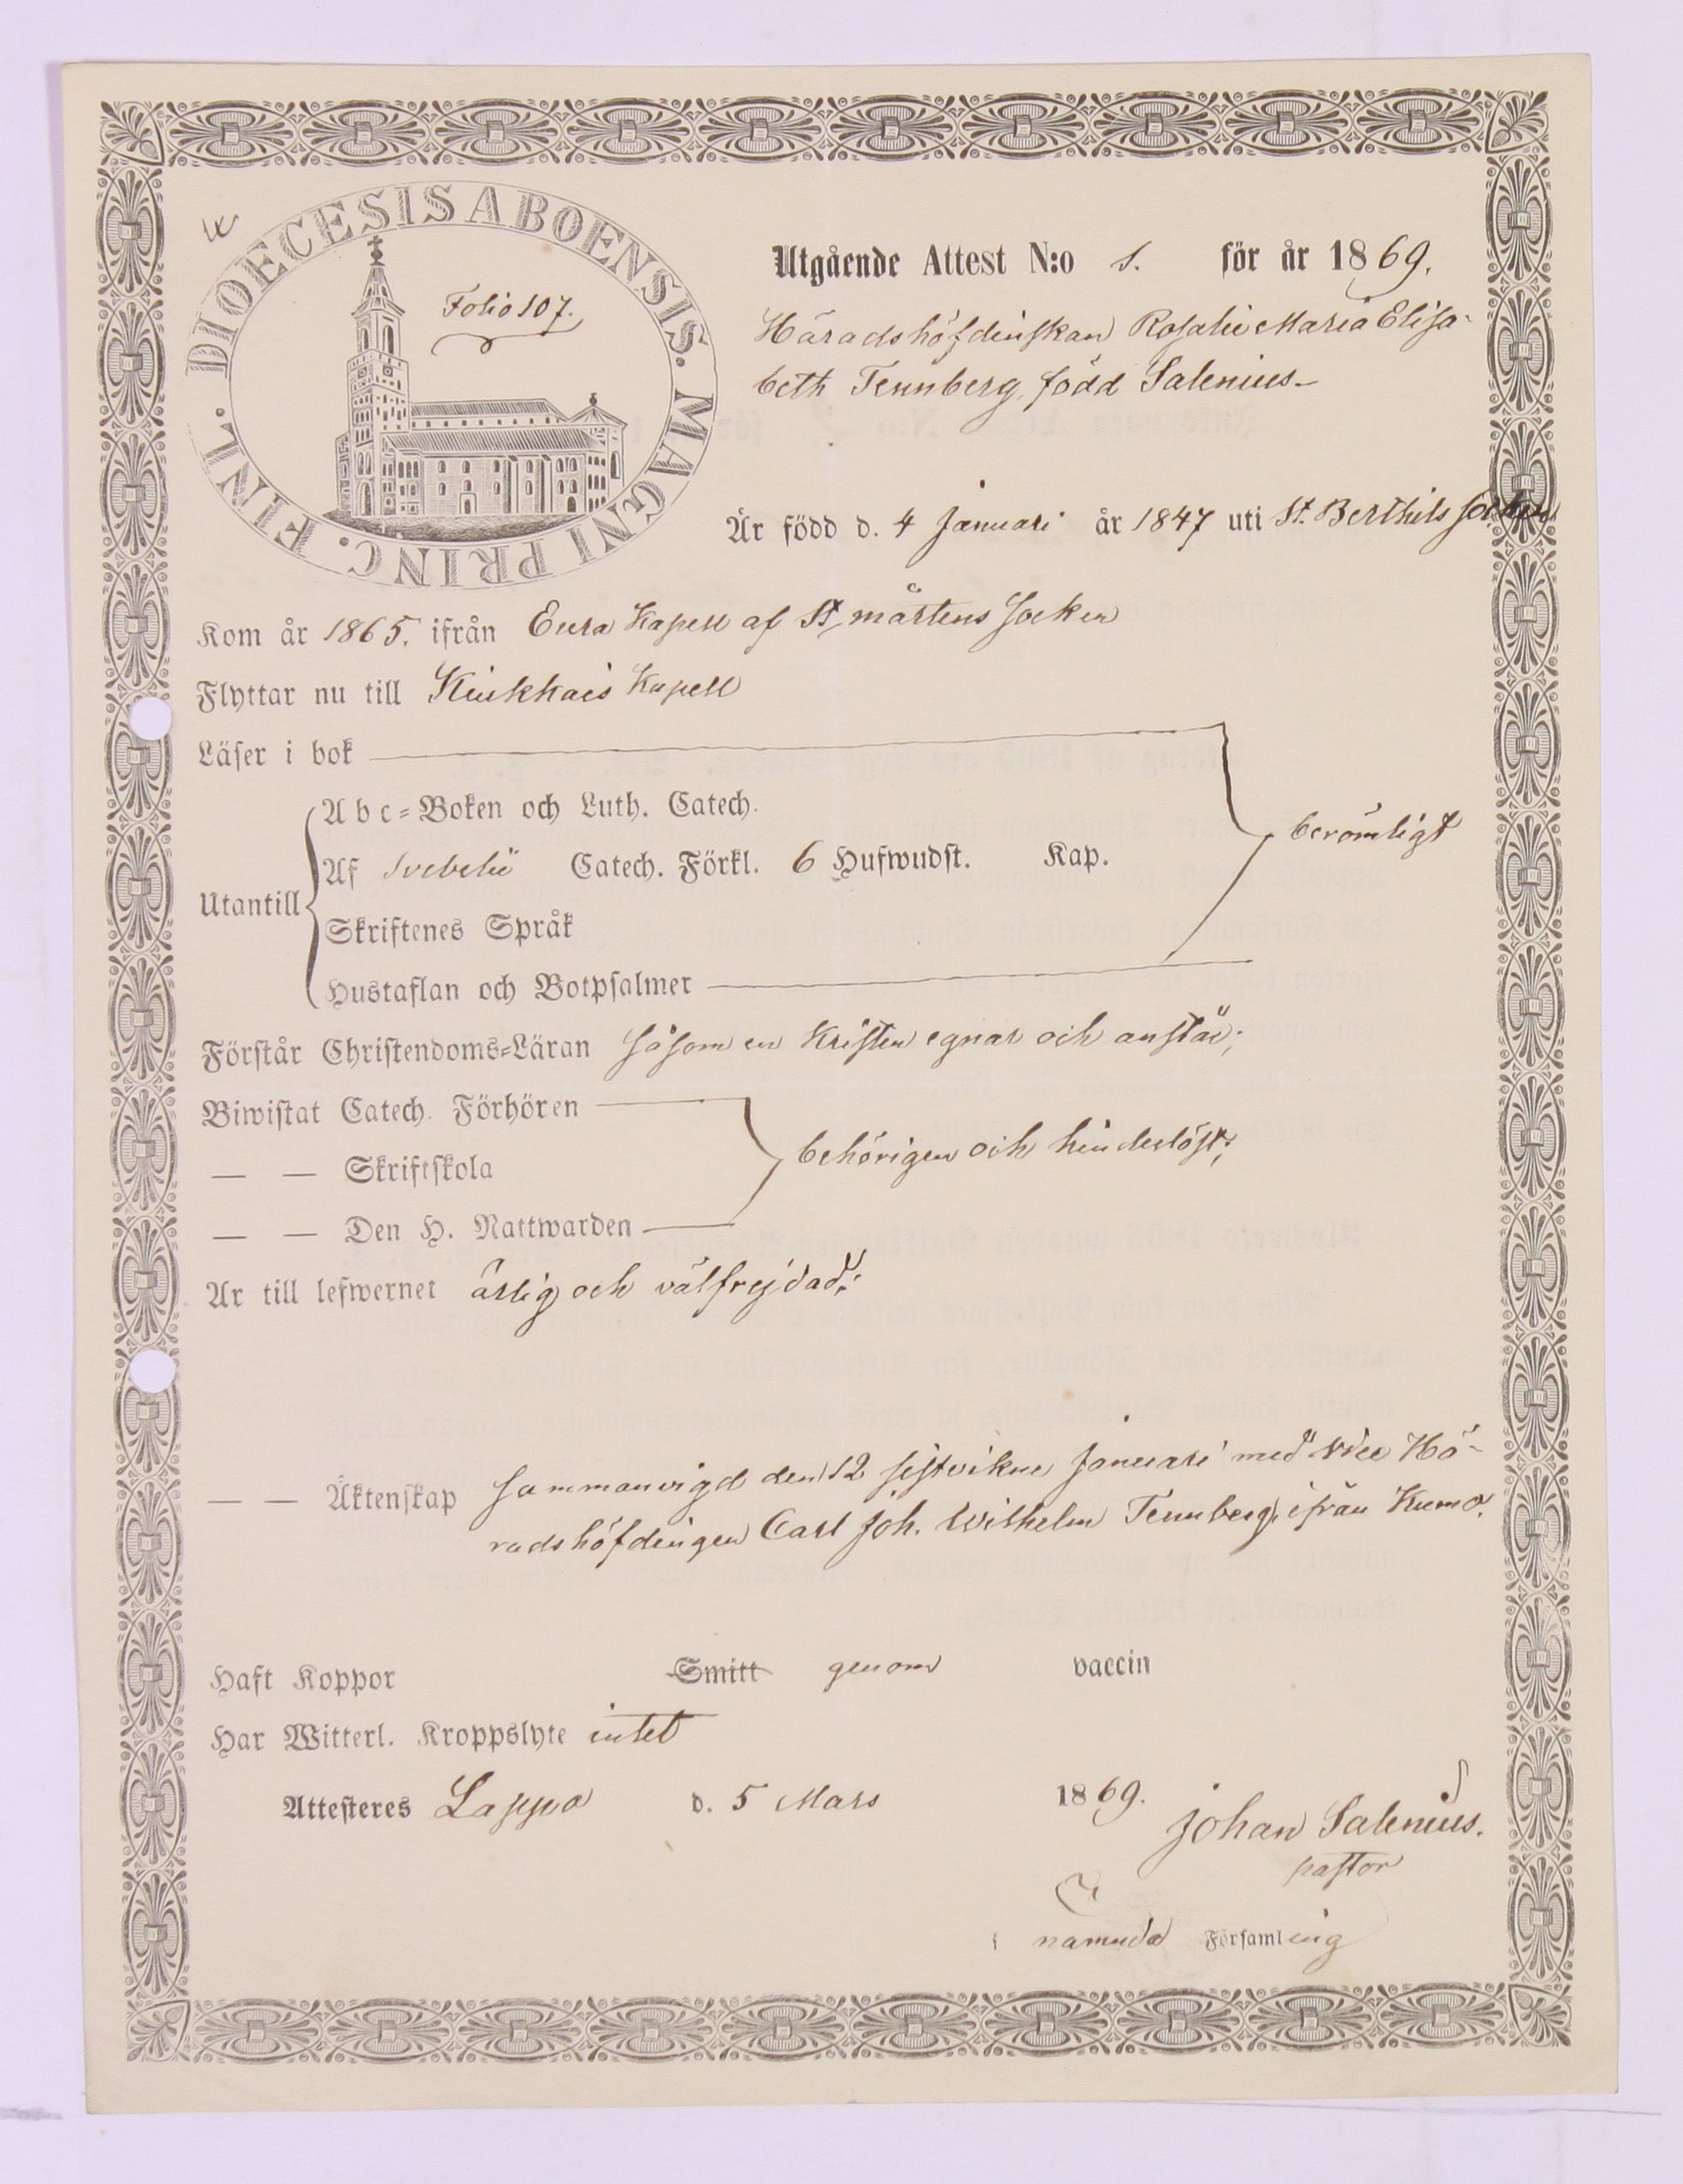 DIOECESIS ABOENSIS. MAGNI PRINC. FINL.
Folio 107.
Utgående Attest N:o 1. för år 1869.
Häradshöfdinskan Rosalie Maria Elisa-
beth Tennberg, född Salenius
Är född d. 4 Januari år 1847 uti St. Berthils Socken
Kom år 1865. ifrån Eura Kapell af St. mårtens Socken
Flyttar nu till Kiukkais Kapell
Läser i bok
Abc-Boken och Luth. Catech.
Af Svebelii Catech. Förkl. 6 Hufwudst. Kap.
berömligt
Utantill
Skriftenes Språk
Hustaflan och Botpsalmer
Förstår Christendoms-Läran såsom en Kristen egnar och anstår;
Biwistat Catech. Förhören
— — Skriftskola
behörigen och hinderlöst;
— — Den H. Nattwarden
Är till lefwernet ärlig och välfrejdad;
— — Äktenskap Sammanvigd den 12 sistvikne Januari med Vice Hä-
radshöfdingen Carl Joh. Wilhelm Tennberg ifrån Kumo.
Haft Koppor Smitt genom vaccin
Har Witterl. Kroppslyte intet
Attesteres Lappo d. 5 Mars 1869.
Johan Salenius.
pastor
i nämnda Församling